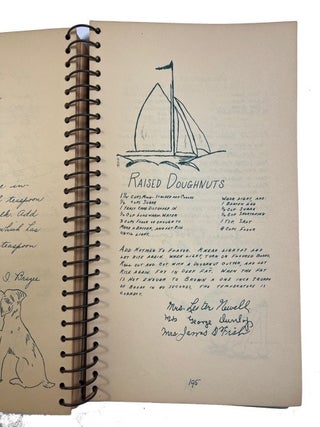 in
teaspoon
Add
which has
teaspoon
RAISED DOUGHNUTS
1 ½ CUPS MILK- SCALDED AND COOLED
½ CUPS SUGAR
1 YEAST CAKE DISSOLVED IN
½ CUP LUKEWARM WATER
3 CUPS FLOUR OR ENOUGH TO
MAKE A BATTER, AND LET RISE
UNTIL LIGHT.
WHEN LIGHT, ADD
1 BEATEN EGG
½ CUP SUGAR
½ CUP SHORTENING
1 TSP. SALT
4 CUPS FLOUR
ADD NUTMEG TO FLAVOR. KNEAD LIGHTLY AND
LET RISE AGAIN. WHEN LIGHT, TURN ON FLOURED BOARD,
ROLL OUT AND CUT WITH A DOUGHNUT CUTTER, AND LET
RISE AGAIN. FRY IN DEEP FAT. WHEN THE FAT
IS HOT ENOUGH TO BROWN A ONE INCH SQUARE
OF BREAD IN 60 SECONDS, THE TEMPERATURE IS
CORRECT.
Mrs. Lester Newell
Mrs George Dunlop
Mrs. James D. Frish
195